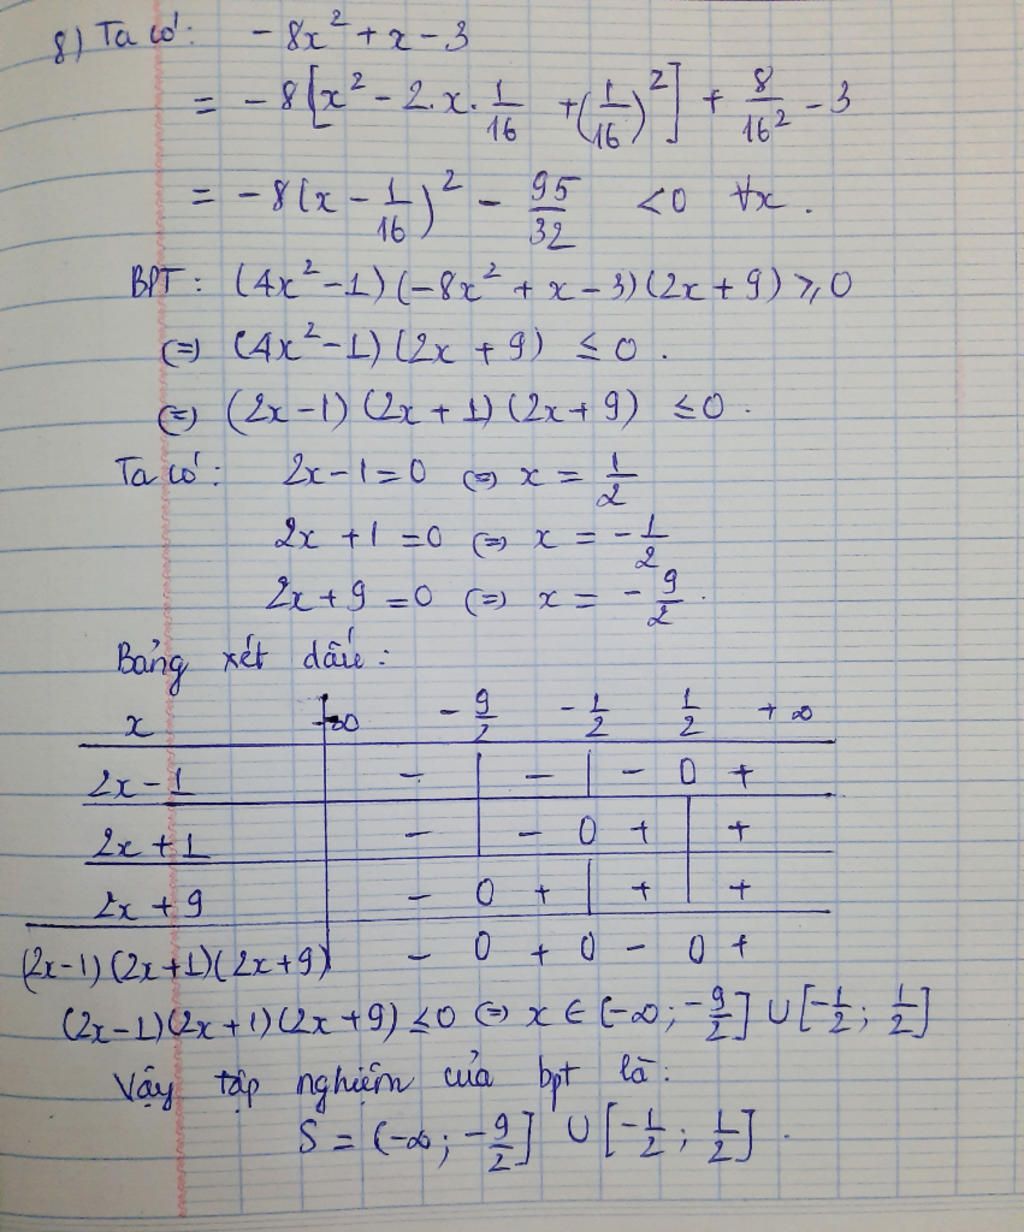 8) Ta có: -8x² + x - 3
= -8[x² - 2.x.1/16 + (1/16)²] + 8/16² - 3
= -8(x - 1/16)² - 95/32 <0 ∀x.
BPT: (4x² - 1)(-8x² + x - 3)(2x + 9) ≥ 0
(=) (4x² - 1)(2x + 9) ≤ 0.
(=) (2x - 1)(2x + 1)(2x + 9) ≤ 0.
Ta có: 2x - 1 = 0 (=) x = 1/2
2x + 1 = 0 (=) x = -1/2
2x + 9 = 0 (=) x = -9/2.
Bảng xét dấu:
x -∞ -9/2 -1/2 1/2 +∞
2x - 1 - | - | - 0 +
2x + 1 - | - 0 + | +
2x + 9 - 0 + | + | +
(2x-1)(2x+1)(2x+9) - 0 + 0 - 0 +
(2x-1)(2x+1)(2x+9) ≤ 0 (=) x ∈ (-∞; -9/2] ∪ [-1/2; 1/2]
Vậy tập nghiệm của bpt là:
S = (-∞; -9/2] ∪ [-1/2; 1/2].